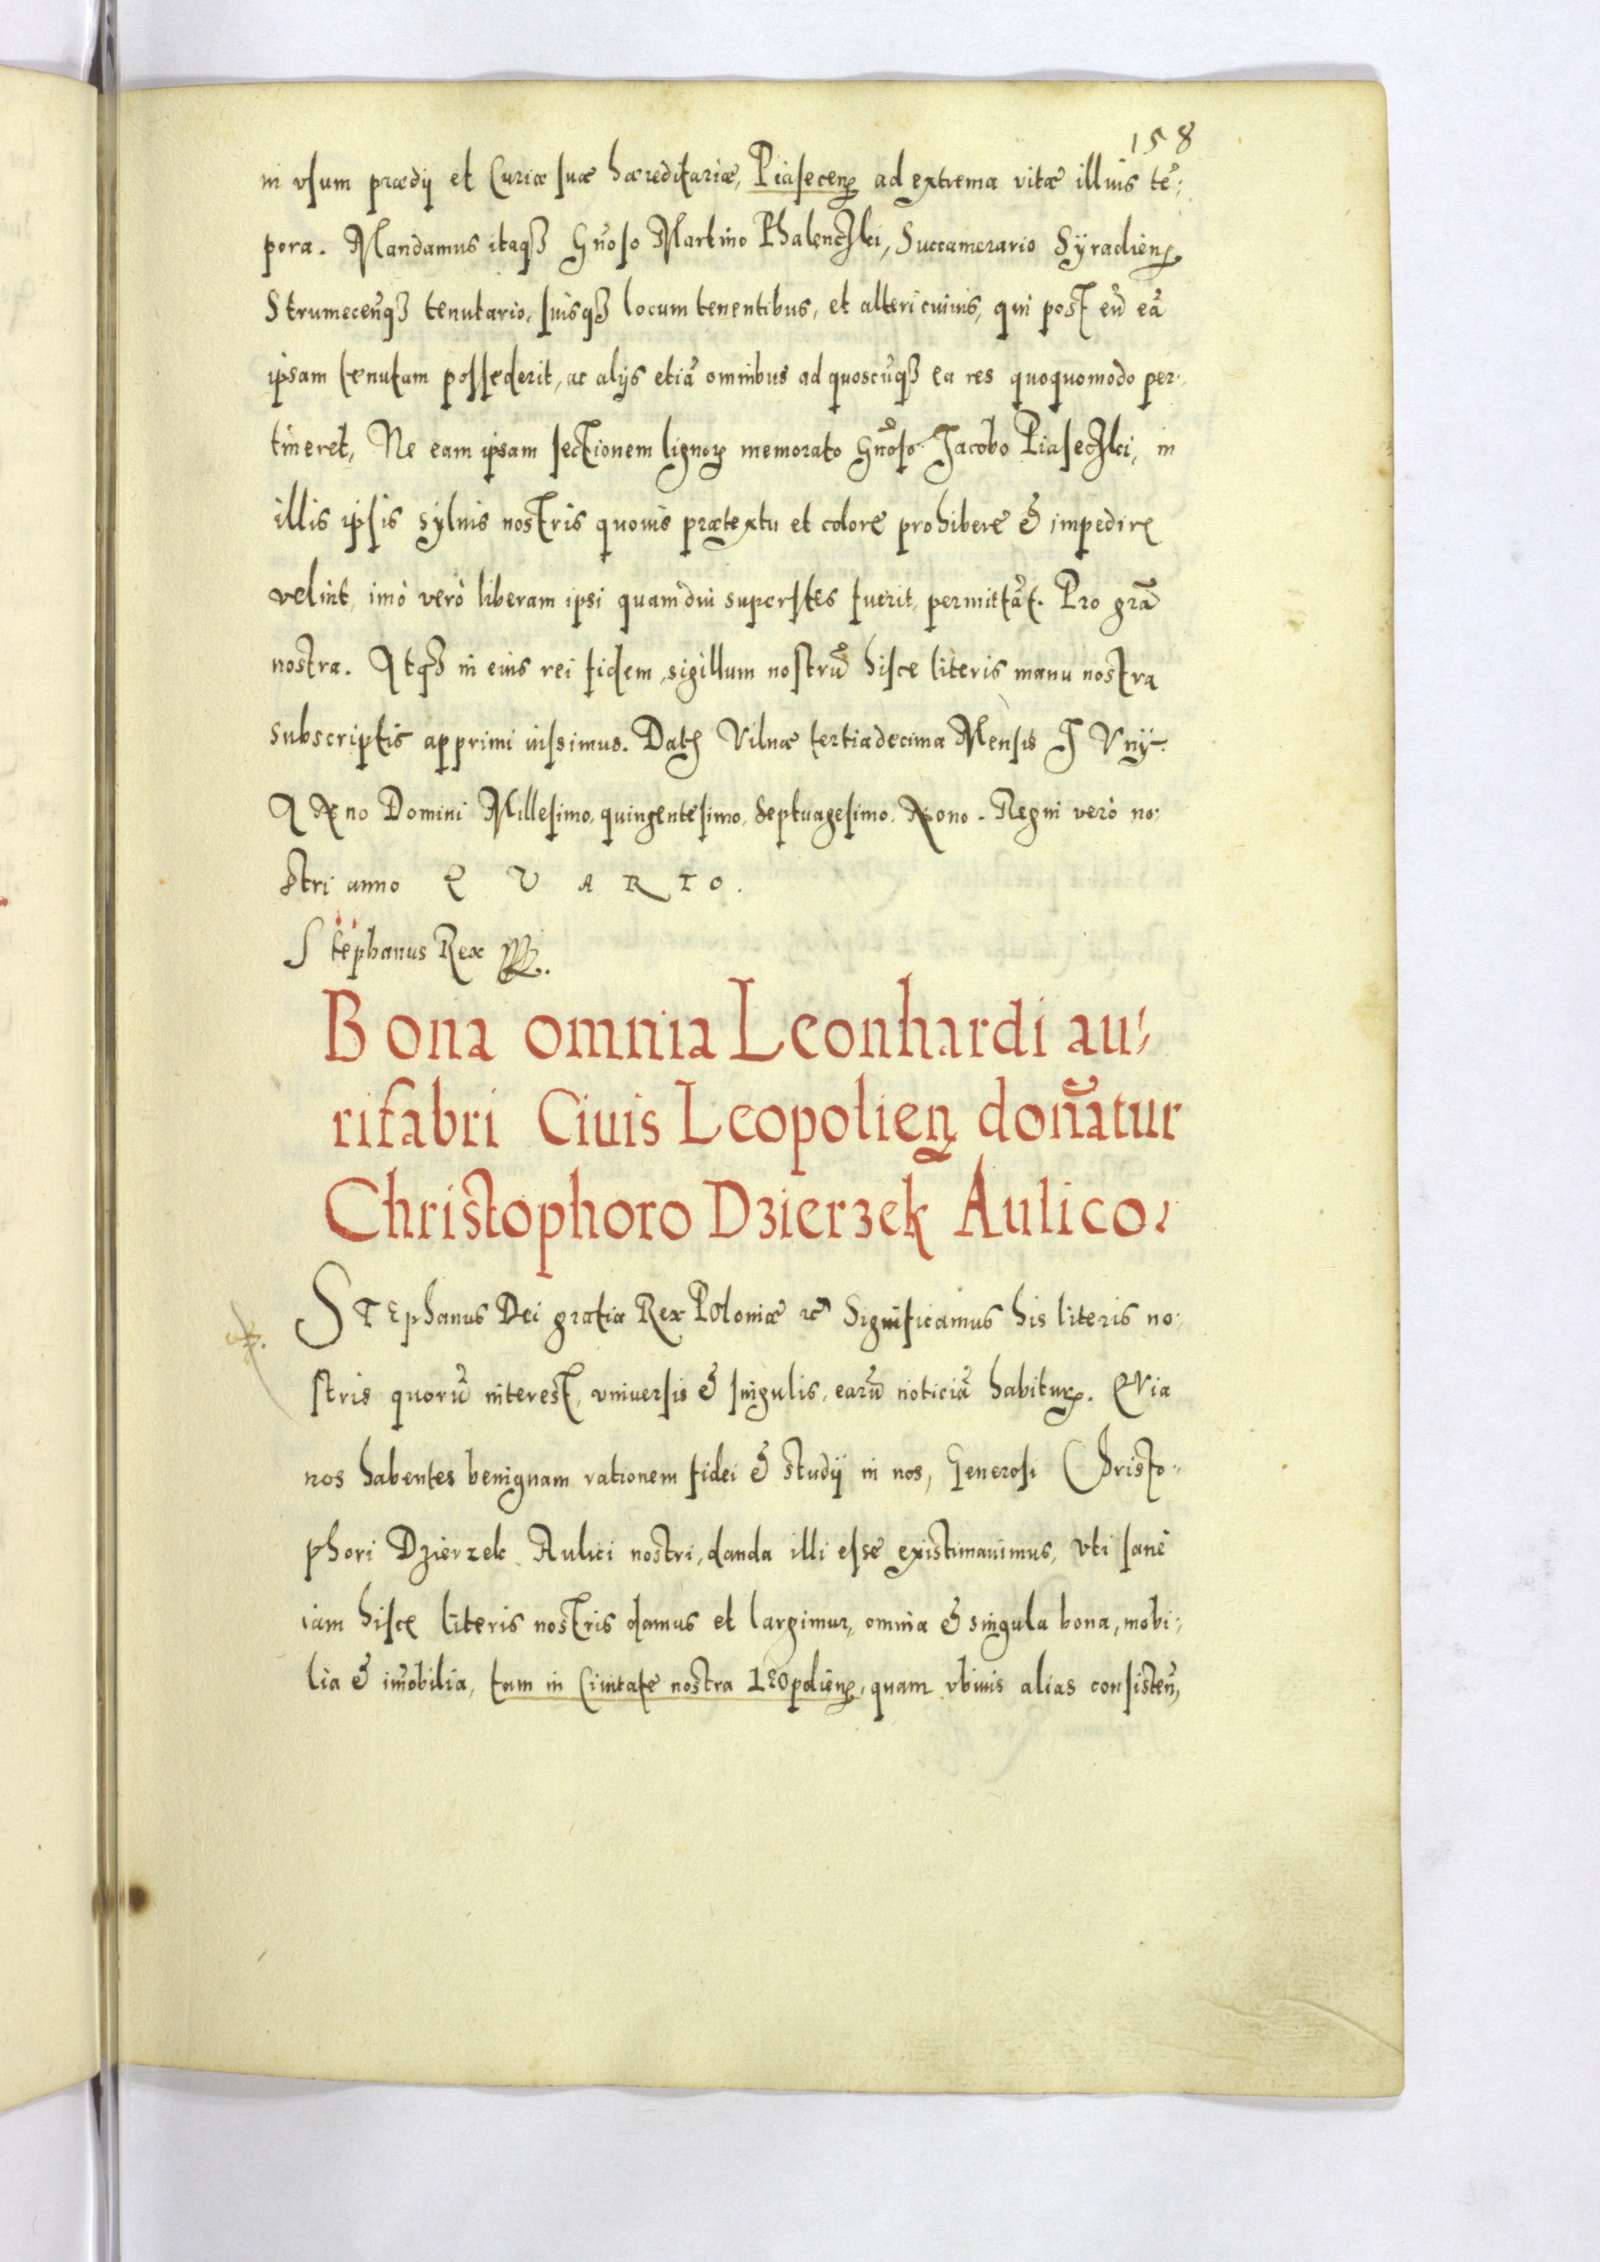 158
in vsum prædij et Curiæ suæ hæreditariæ, Piasecen̄ ad extrema vitæ illius tẽ:
pora. Mandamus itaqꝫ Gn̄oso Martino Phalenczki, Succamerario Syradien̄
Strumecen̄qꝫ tenutario, suisqꝫ locum tenentibus, et alteri cuiuis, qui post eũ eã
ipsam tenutam possederit, ac alijs etiã omnibus ad quoscũqꝫ ea res quoquomodo per-
tineret, Ne eam ipsam sectionem lignoꝝ memorato Gn̄oso Jacobo Piaseczki, in
illis ipsis syluis nostris quouis prætextu et colore prohibere & impedire
velint, imò verò liberam ipsi quamdiu superstes fuerit, permittãt. Pro grã
nostra. Atqꝫ in eius rei fidem, sigillum nostrũ hisce literis manu nostra
subscriptis apprimi iussimus. Datꝭ Vilnæ tertiadecima Mensis JVnij.
ANno Domini Millesimo, quingentesimo, septuagesimo, Nono. Regni verò no:
stri anno QVARTO.
Stephanus Rex
Bona omnia Leonhardi au:
rifabri Ciuis Leopolien̄ donãtur
Christophoro Dzierzek Aulico.
STEphanus Dei gratia Rex Poloniæ ꝛc̃ Significamus his literis no:
stris quorũ interest, vniuersis & singulis, earũ noticiã habituꝝ. QVia
nos habentes benignam rationem fidei & studij in nos, Generosi Christo-
phori Dzierzek Aulici nostri, danda illi esse existimauimus, vti sanè
iam hisce literis nostris damus et largimur, omnia & singula bona, mobi:
lia & im̄obilia, tam in Ciuitate nostra LEOpolien̄, quam vbiuis alias consisten̄,